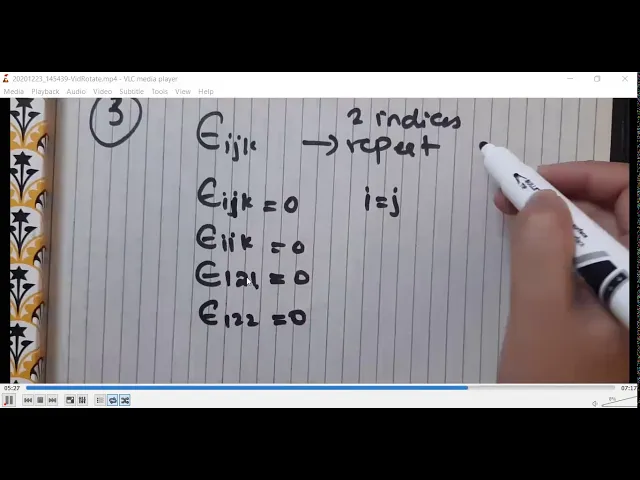 20201223_145439-VidRotate.mp4 - VLC media player
Media Playback Audio Video Subtitle Tools View Help
3
2 indices
ϵijk → repeat
ϵijk = 0 i=j
ϵiik = 0
ϵ121 = 0
ϵ122 = 0
05:27 07:17